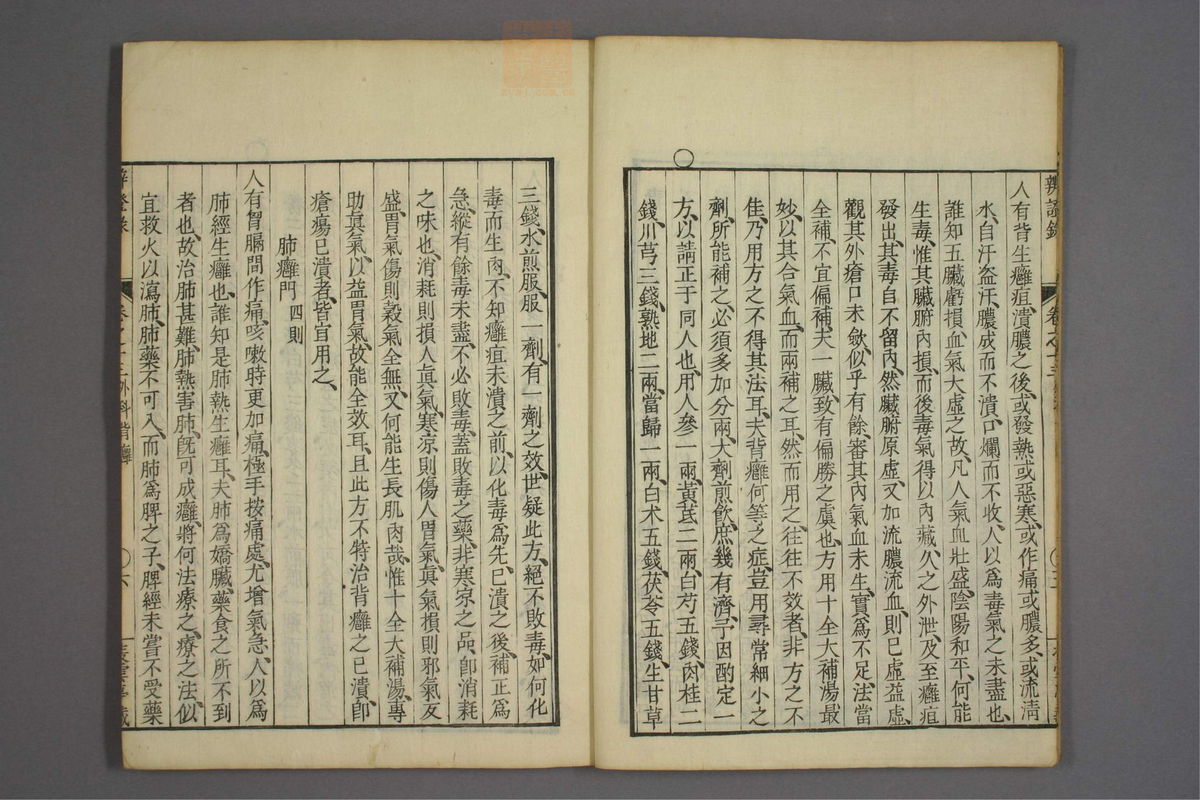 人有背生癰疽潰膿之後或發熱或惡寒或作痛或膿多或流清
水自汗盜汗膿成而不潰口爛而不收人以爲毒氣之未盡也
誰知五臟虧損血氣大虛之故凡人氣血壯盛陰陽和平何能
生毒惟其臟腑內損而後毒氣得以內藏久之外泄及至癰疽
發出其毒自不留內然臟腑原虛又加流膿流血則已虛益虛
觀其外瘡口未斂似乎有餘審其內氣血未生實爲不足法當
全補不宜偏補夫一臟致有偏勝之虞也方用十全大補湯最
妙以其合氣血而兩補之耳然而用之往往不效者非方之不
佳乃用方之不得其法耳夫背癰何等之症豈用尋常細小之
劑所能補之必須多加分兩大劑煎飲庶幾有濟予因酌定一
方以請正于同人也用人參一兩黃芪二兩白芍五錢肉桂二
錢川芎三錢熟地二兩當歸一兩白术五錢茯苓五錢生甘草
三錢水煎服服一劑有一劑之效世疑此方絕不敗毒如何化
毒而生肉不知癰疽未潰之前以化毒爲先已潰之後補正爲
急縱有餘毒未盡不必敗毒蓋敗毒之藥非寒凉之品卽消耗
之味也消耗則損人眞氣寒涼則傷人胃氣眞氣損則邪氣反
盛胃氣傷則穀氣全無又何能生長肌肉哉惟十全大補湯專
助眞氣以益胃氣故能全效耳且此方不特治背癰之已潰卽
瘡瘍已潰者皆宜用之
肺癰門 四則
人有胷膈間作痛咳嗽時更加痛極手按痛處尤增氣急人以爲
肺經生癰也誰知是肺熱生癰耳夫肺爲嬌臟藥食之所不到
者也故治肺甚難肺熱害肺旣可成癰將何法療之療之法似
宜救火以瀉肺肺藥不可入而肺爲脾之子脾經未嘗不受藥